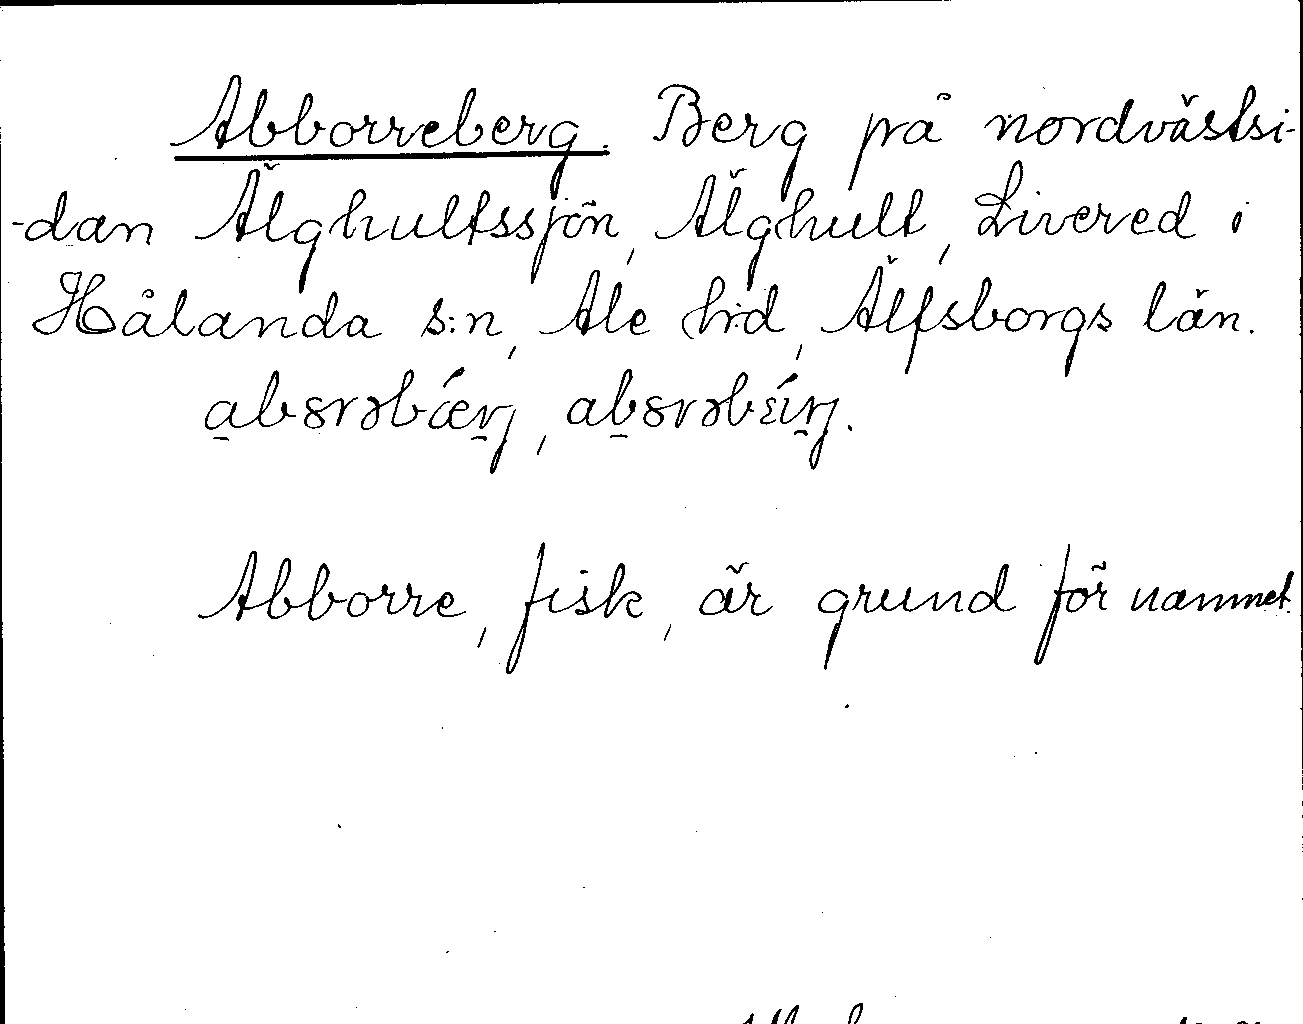 Abborreberg. Berg på nordvästsi-
-dan Älghultssjön, Älghult, Livered i
Hålanda s:n, Ale hd, Älfsborgs län.
Abborre, fisk, är grund för namnet.